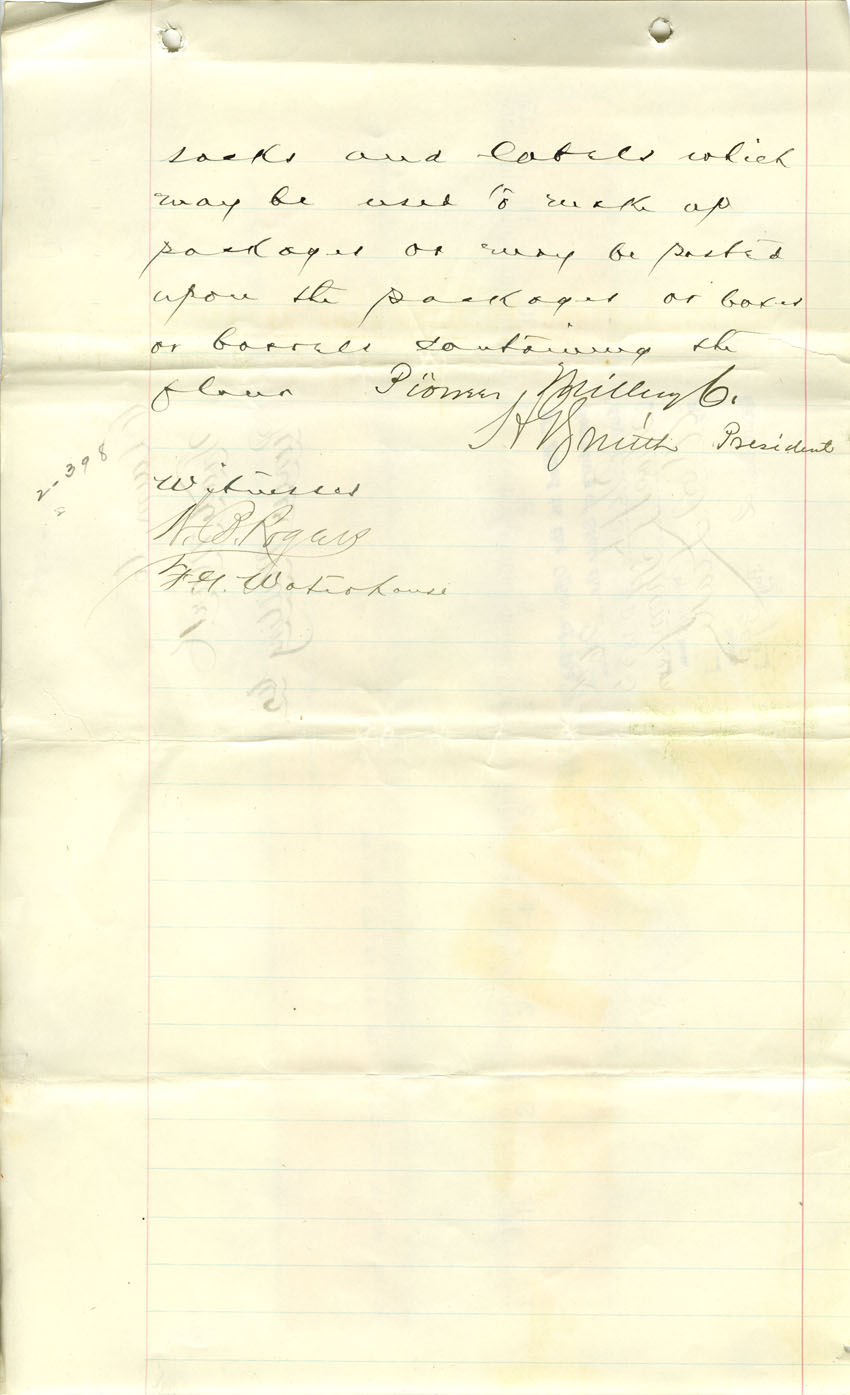 sacks and labels which
may be used to make up
packages or may be pasted
upon the packages or boxes
or barrels containing the
flour Pioneer Milling Co.
H B Smith President
2-398
Witnesses
N. B. Rogers
F. G. Waterhouse